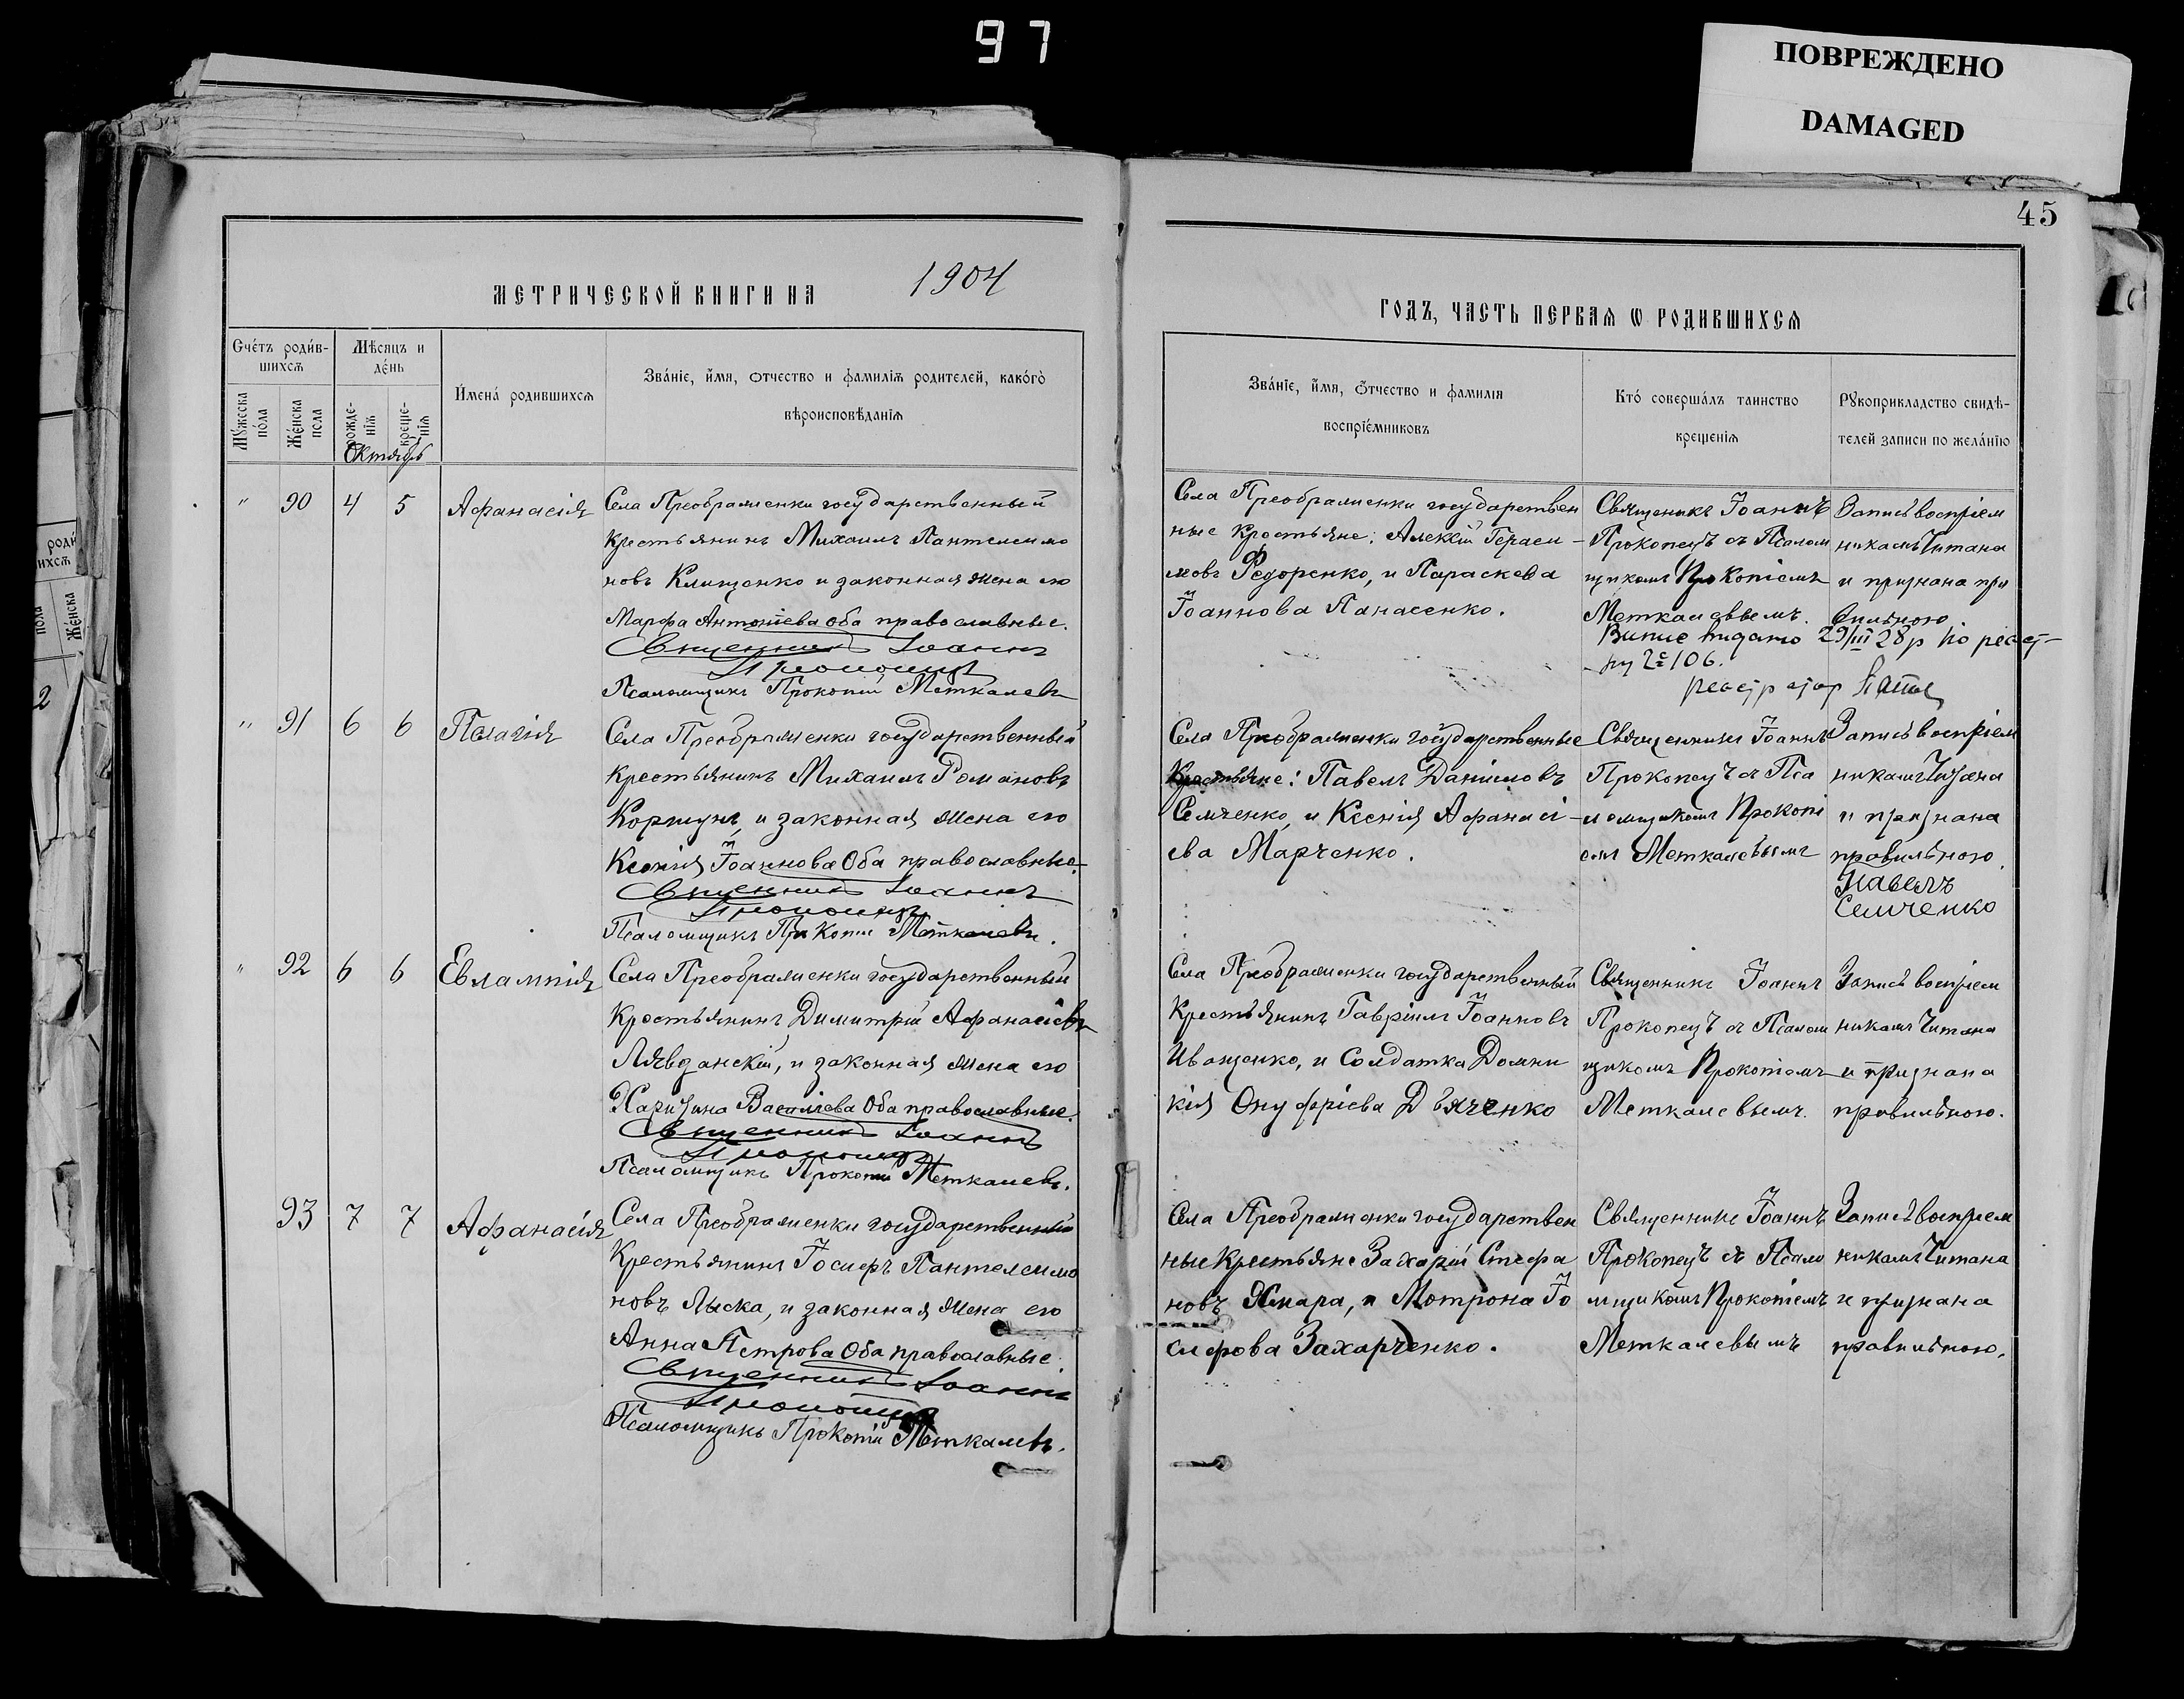 97
ПОВРЕЖДЕНО
DAMAGED
45
МЕТРИЧЕСКОЙ КНИГИ НА 1904
ГОДЪ, ЧАСТЬ ПЕРВАЯ Ѡ РОДИВШИХСЯ
Счéтъ роди́в-
шихсѧ
Мѣсяцъ и
де́нь
Мꙋ́жеска
по́ла
Же́нска
пола
рожде-
нїѧ
креще-
нїѧ
Октябрь
И́мена́ родившихсѧ
Зва́нїе, и́мѧ, ѻтчество и фамилїѧ родителей, како́гѡ
вѣроисповѣданїѧ
Зва́нїе, и́мѧ, ѻтчество и фамилїѧ
воспрїе́мниковъ
Кто́ соверша́лъ таинство
крещенїѧ
Рꙋкоприкладство свидѣ-
телей записи по жела́нїю
" 90 4 5 Афанасія
Села Преображенки государственный
крестьянинъ Михаилъ Пантелеимо
новъ Клищенко и законная жена его
Марфа Антоніева оба православные.
Священникъ Іоаннъ
Прокопецъ
Псаломщикъ Прокопій Меткалевъ
Села Преображенки государствен
ные крестьяне: Алексій Гераси-
мовъ Федоренко, и Параскева
Іоаннова Панасенко.
Священикъ Іоаннъ
Прокопецъ съ Псалом
щикомъ Прокопіемъ
Меткалевымъ.
Запись воспріем
никамъ читана
и признана пра
вильною.
Випис видано 29/III 28р по реест-
ру № 106.
реестратор
" 91 6 6 Пелагія
Села Преображенки государственный
крестьянинъ Михаилъ Романовъ
Коршунъ, и законная жена его
Ксенія Іоаннова Оба православные.
Священникъ Іоаннъ
Прокопецъ
Псаломщикъ Прокопій Меткалевъ.
Села Преображенки государственные
Крестьяне: Павелъ Даниловъ
Семченко, и Ксенія Афанасі-
ева Марченко.
Священникъ Іоаннъ
Прокопецъ съ Пса
ломщикомъ Прокопі
емъ Меткалевымъ
Запись воспріем
никамъ читана
и признана
правильною.
Павелъ
Семченко
" 92 6 6 Евлампія
Села Преображенки государственный
Крестьянинъ Димитрій Афанасіевъ
Лявданскій, и законная жена его
Харитина Васильева Оба православные.
Священникъ Іоаннъ
Прокопецъ
Псаломщикъ Прокопій Меткалевъ.
Села Преображенки государственный
Крестьянинъ Гавріилъ Іоанновъ
Иващенко, и Солдатка Домни
кія Онуфріева Дьяченко
Священникъ Іоаннъ
Прокопецъ съ Псалом
щикомъ Прокопіемъ
Меткалевымъ.
Запись воспріем
никамъ читана
и признана
правильною.
93 7 7 Афанасія
Села Преображенки государственный
Крестьянинъ Іосифъ Пантелеимо
новъ Лыска, и законная жена его
Анна Петрова Оба православные.
Священникъ Іоаннъ
Прокопецъ
Псаломщикъ Прокопій Меткалевъ.
Села Преображенки государствен
ные крестьяне Захарій Стефа
новъ Хмара, и Мотрона Іо
сифова Захарченко.
Священникъ Іоаннъ
Прокопецъ съ Псало
мщикомъ Прокопіемъ
Меткалевымъ
Запись воспріем
никамъ читана
и признана
правильною.